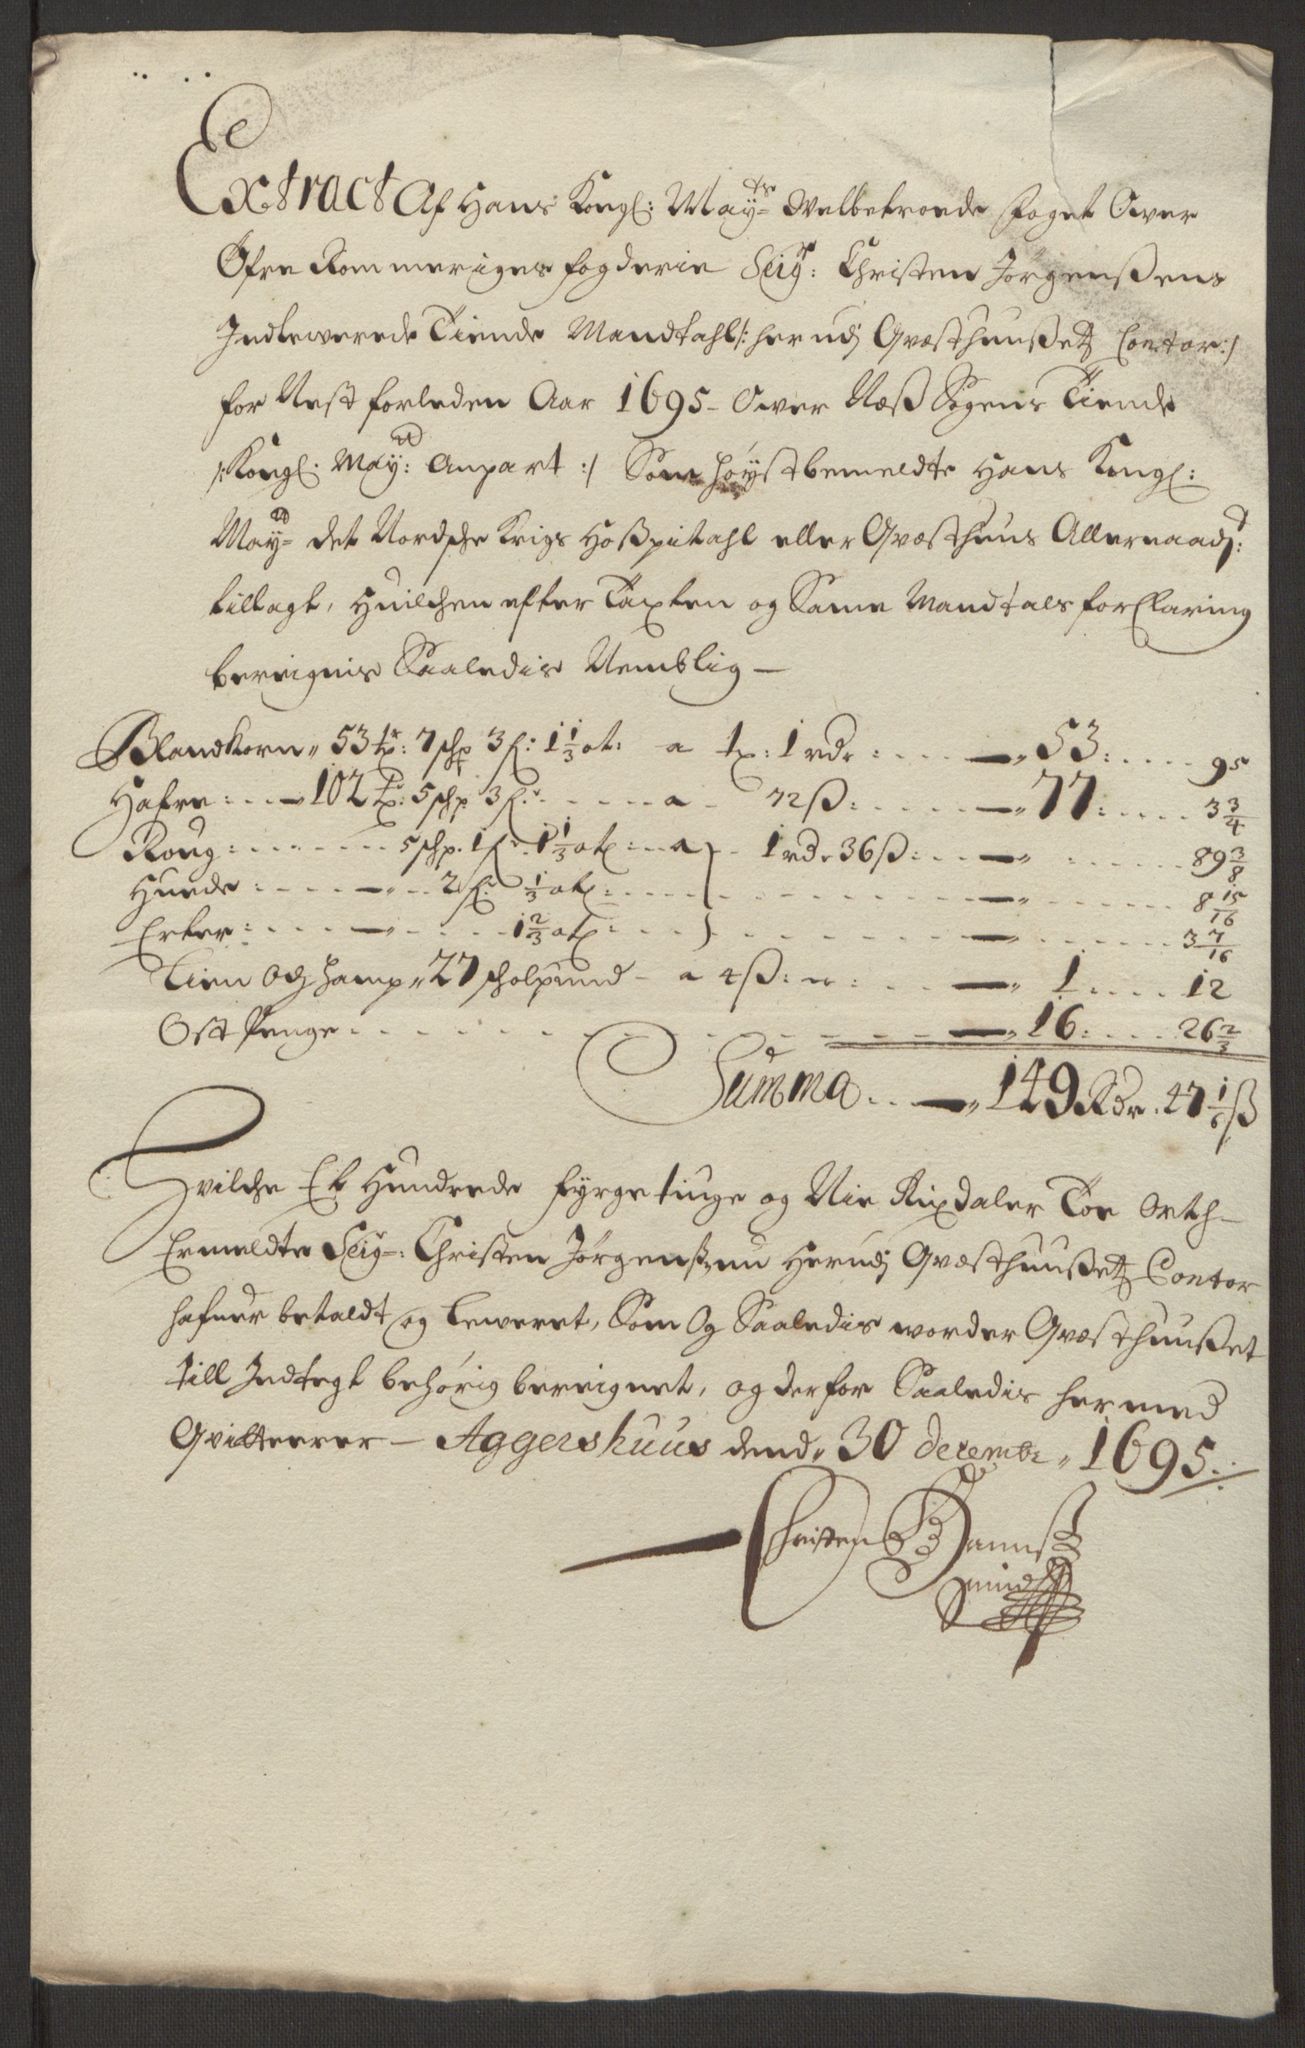 Extract Af Hans Kongl: Mayts Welbetroede foget Ower
Øfre Rommeriges fogderie Seigr: Christen Jørgenßens
Indleverede Tiende Mandtahl /: herudj Qvæsthuußetz Contor :/
for Nest forleden Aar 1695 - Ower Næß Sogens Tiende
/: Kongl: Mayts: Anpart :/ Som høystbemeldte Hans Kongl:
Mayts det Nordsche Krigs Hoßpitahl eller Qvæsthuus Allernaadt:
tillagt, Huilchen efter Taxten og Same Mandtals forClaring
bereignis Saaledis Nemblig —
Blandkorn 53 tr: 7 schp 3 f: 1 1/3 ot: a tr: 1 rdr: — 53: 95
Hafre: — 102 tr: 5 schp 3 f: a 72 ß: — 77: 3 3/4
Roug: 5 schp. 1 f: 1 1/3 ot: a 1 rdr 36 ß: — 89 3/8
Huede: — 2 f: 1/3 ot: — 8 15/16
Erter: — 1 2/3 ot: — 3 7/16
Lien Og hamp 27 scholpund - a 4 ß: — 1: 12
Ost Penge — 16: 26 2/3
Summa — 149 Rdr. 47 1/6 ß
Hvilche Et Hundrede fyrgetiuge og Nie Rixdaler Toe Orth -
Ermeldte Seigr: Christen Jørgenßen nu Herudj Qvæsthuußetz Contor
hafuer betaldt og Leweret, Som Og Saaledis worder Qvæsthuußet
till Indtegt behørig bereignet, og derfor Saaledis hermed
Qvitterer — Aggershuus dend 30 decembr 1695.
Christen